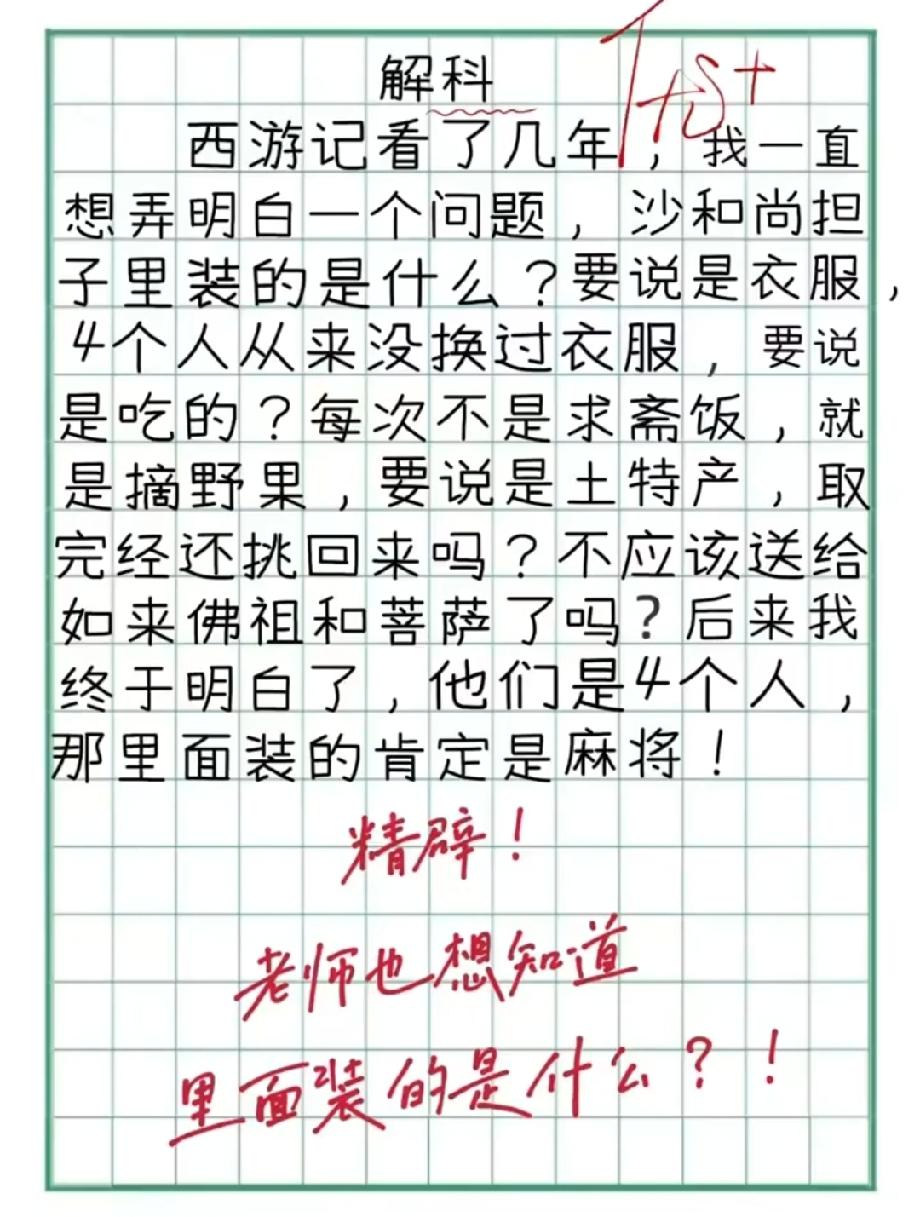 解科
西游记看了几年，我一直
想弄明白一个问题，沙和尚担
子里装的是什么？要说是衣服，
4个人从来没换过衣服，要说
是吃的？每次不是求斋饭，就
是摘野果，要说是土特产，取
完经还挑回来吗？不应该送给
如来佛祖和菩萨了吗？后来我
终于明白了，他们是4个人，
那里面装的肯定是麻将！
精辟！
老师也想知道
里面装的是什么？！